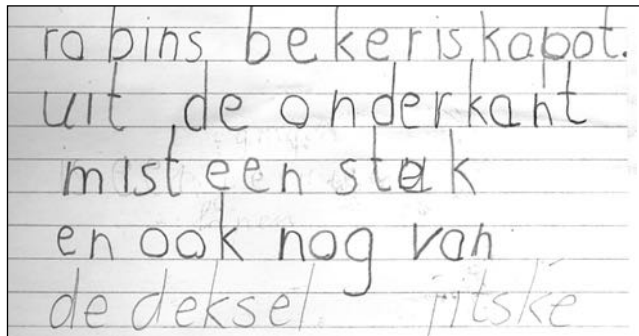 robins beker is kapot.
uit de onderkant
mist een stuk
en ook nog van
de deksel. jitske